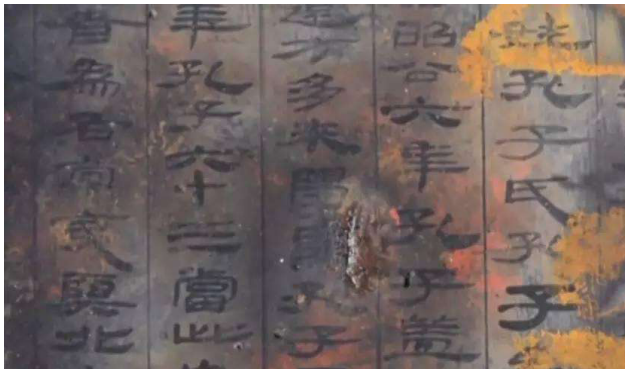 孔子氏孔子
昭公六年孔子蓋
遠方多來學焉孔子
年孔子六十三當此
者爲右南夷與北